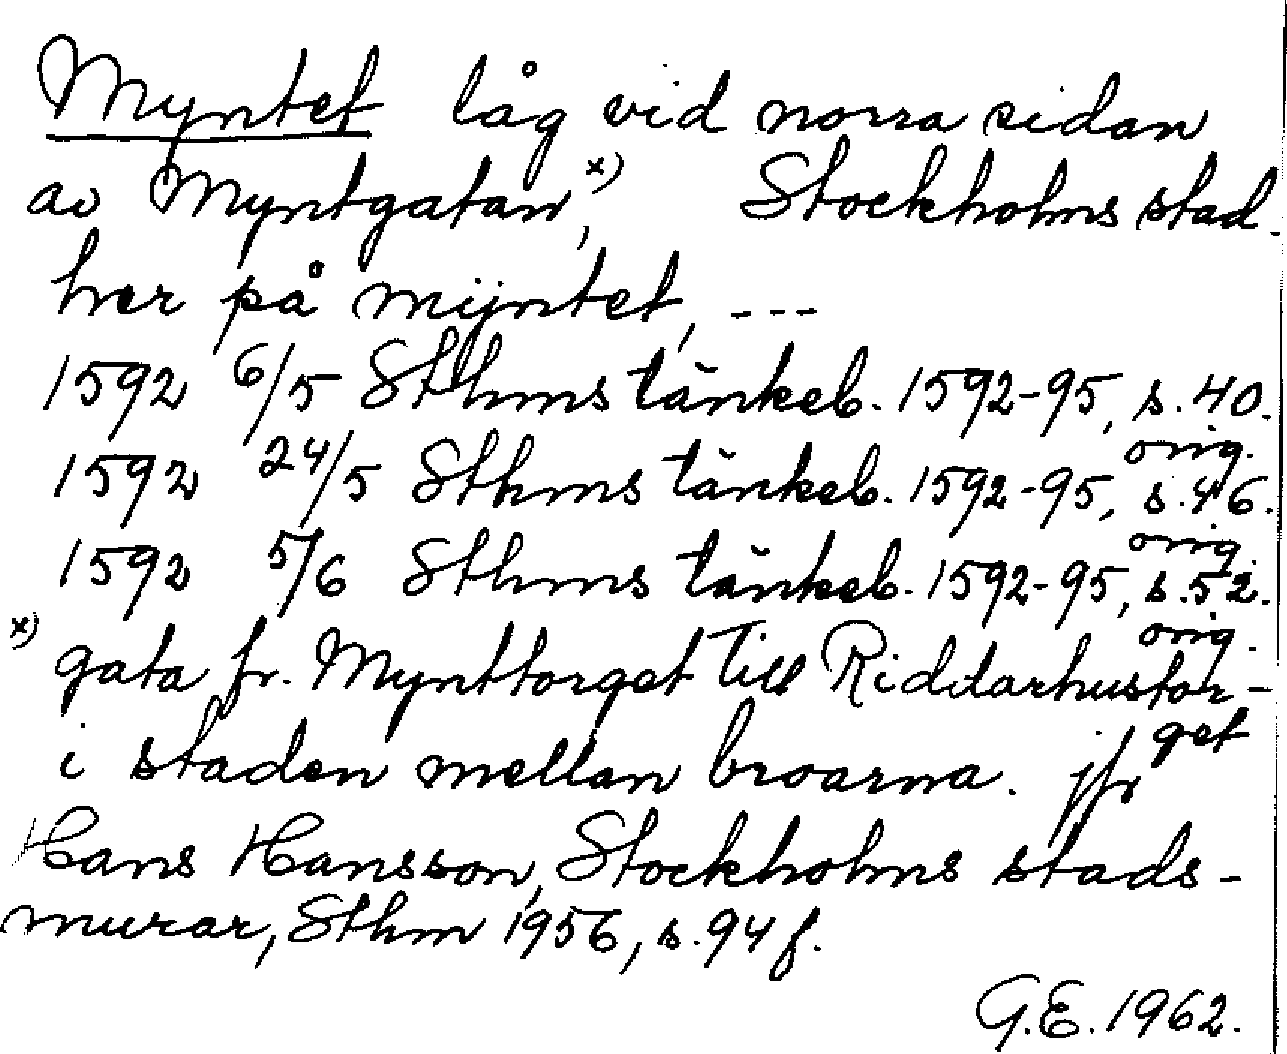 Myntet låg vid norra sidan
av Myntgatan,x) Stockholms stad.
her på mijntet, ---
1592 6/5 Sthms tänkeb. 1592-95, s. 40.
orig.
1592 24/5 Sthms tänkeb. 1592-95, s. 46.
orig.
1592 5/6 Sthms tänkeb. 1592-95, s. 52.
orig.
x) gata fr. Mynttorget till Riddarhustor-
get
i staden mellan broarna. jfr
Hans Hansson, Stockholms stads-
murar, Sthm 1956, s. 94 f.
G.E. 1962.